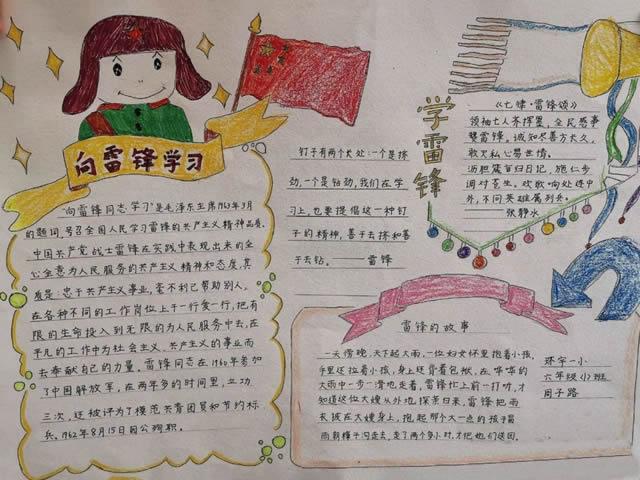 向雷锋学习
"向雷锋同志学习"是毛泽东主席1963年3月
的题词,号召全国人民学习雷锋的共产主义精神品质。
中国共产党战士雷锋在实践中表现出来的全
心全意为人民服务的共产主义精神和态度,其
度是:忠于共产主义事业,毫不利己帮助别人,
在各种不同的工作岗位上干一行爱一行,把有
限的生命投入到无限的为人民服务中去,在
平凡的工作中为社会主义、共产主义的事业而
去奉献自己的力量,雷锋同志在1960年参加
了中国解放军,在两年多的时间里,立功
三次,还被评为了模范共青团员和节约标
兵。1962年8月15日因公殉职。
钉子有两个长处:一个是挤
劲,一个是钻劲,我们在学
习上,也要提倡这一种钉
子的精神,善于去挤和善
于去钻。——雷锋
学雷锋
《七律·雷锋颂》
领袖七人茶撑里,全民感事
赞雷锋。诚知尽善方长久,
敢灭私心易世情。
沥胆箴言归日记,施仁步
调对苍生。欢歌响处进中
外,不同英雄属列考。
—张静水
雷锋的故事
一天傍晚,天下起大雨,一位妇女怀里抱着小孩,
手里还拉着小孩,身上还背着包袱,在哗哗的
大雨中一步一滑地走着,雷锋忙上前一打听,才
知道这位大嫂从外地探亲归来,雷锋把雨
衣披在大嫂身上,抱起那个大一点的孩子冒
雨朝樟子沟走去,走了两个多小时,才把她们送回。
环宇一小
六年级(2)班
周子路